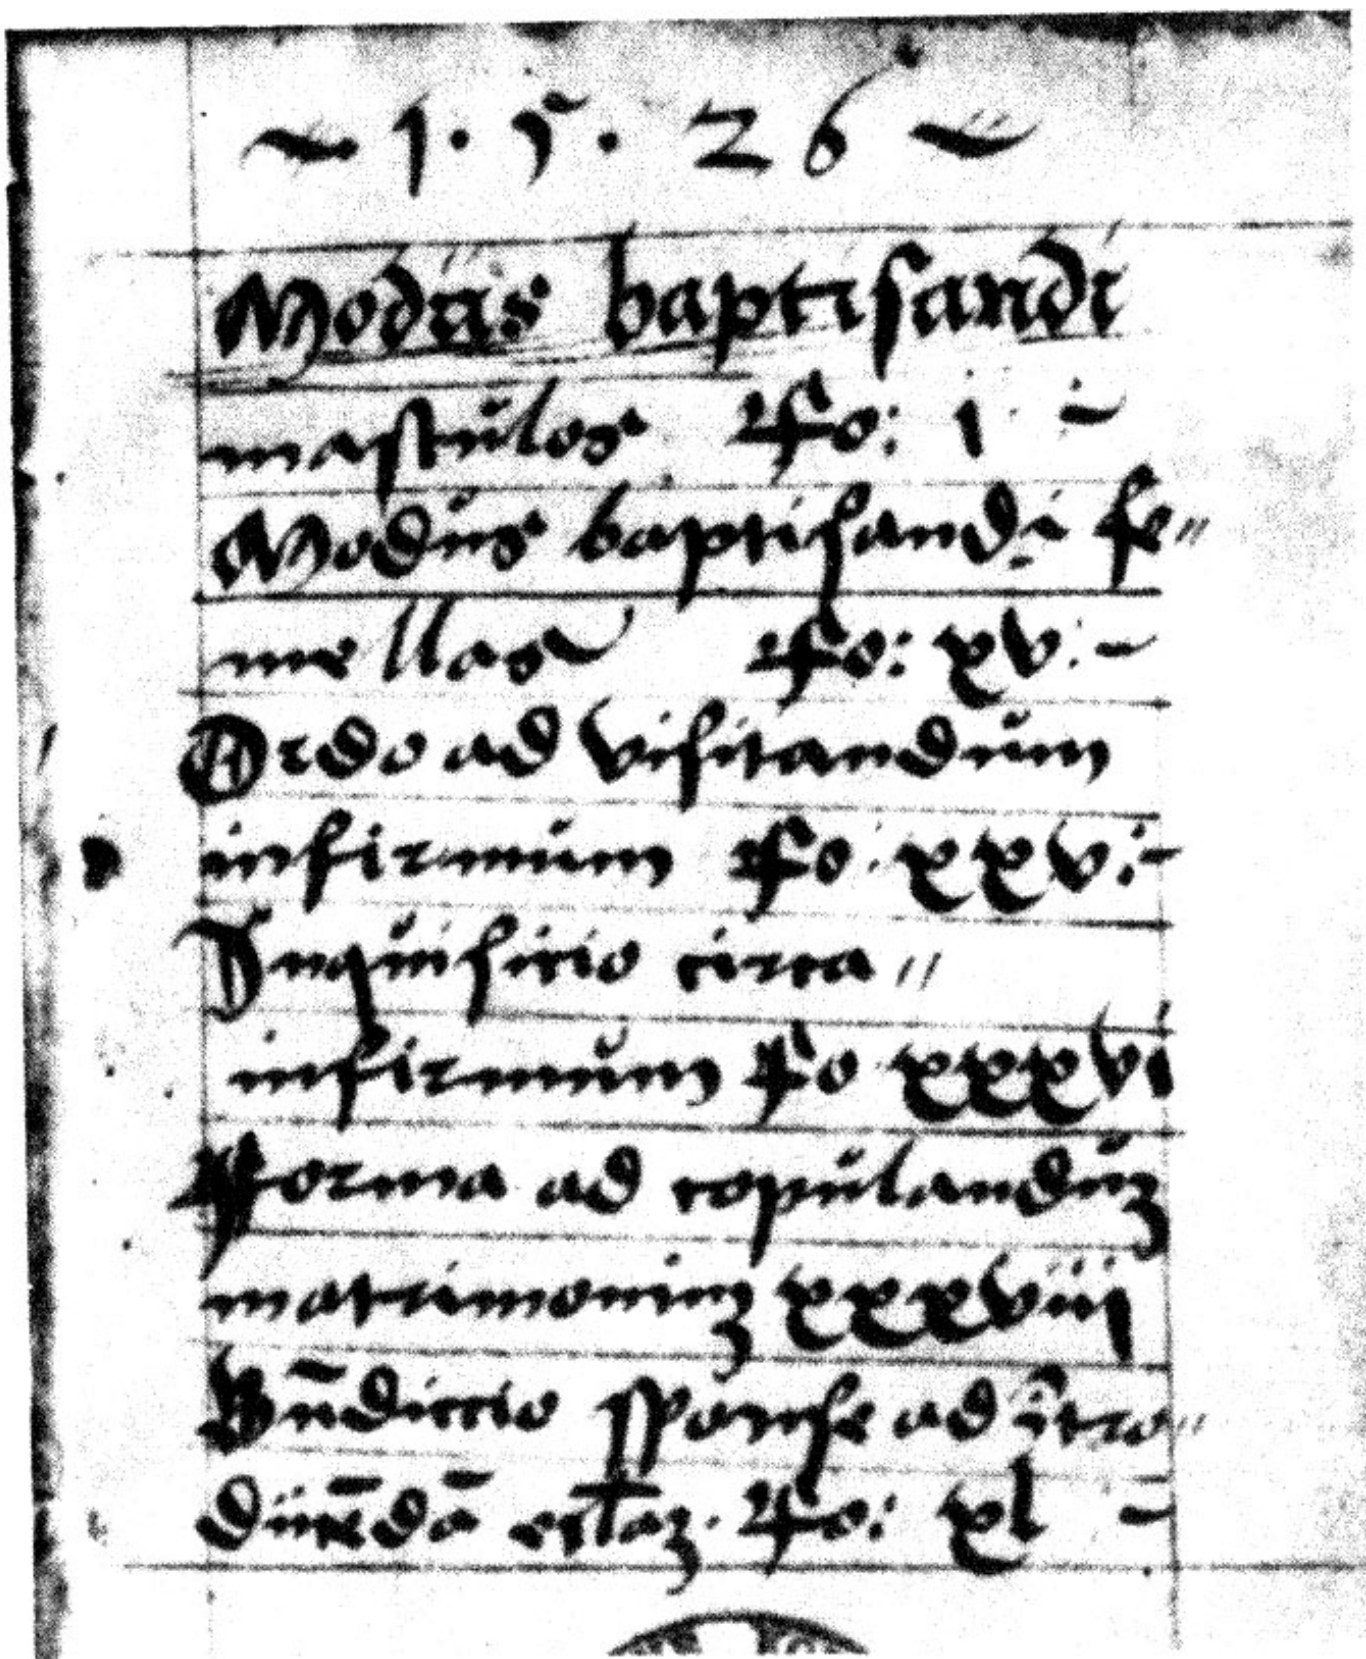 ~ 1 · 5 · 26 ~
Modus baptisandi
masculos Fo: i ~
Modus baptisandi fe„
mellas Fo: xv: ~
Ordo ad visitandum
infirmum Fo: xxv: ~
Inquisitio circa „
infirmum Fo xxxvi
Forma ad copulanduz
matrimoniuz xxxviij
Bn̄dictio sponse ad ītro„
ducēdā eccl̄iaz. Fo: xl ~